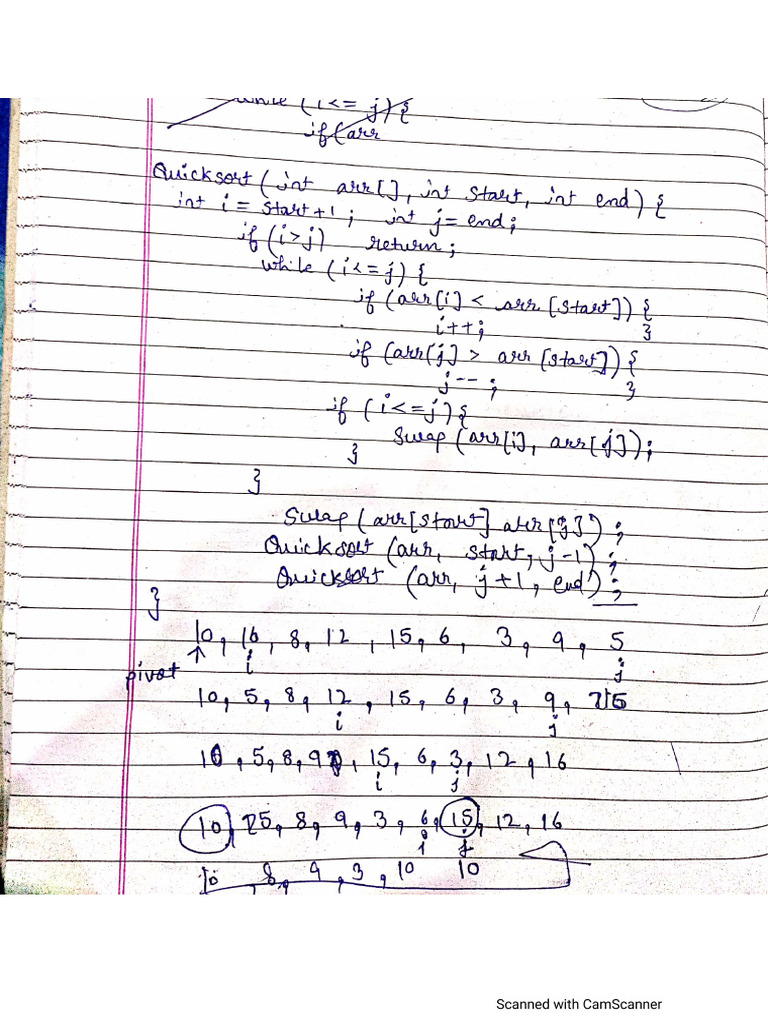 while (i <= j) {
if (arr
Quicksort (int arr[], int start, int end) {
int i = start+1; int j = end;
if (i>j) return;
while (i<=j) {
if (arr[i] < arr[start]) {
i++;
}
if (arr[j] > arr[start]) {
j--;
}
if (i<=j) {
Swap (arr[i], arr[j]);
}
}
Swap (arr[start] arr[j]);
Quicksort (arr, start, j-1);
Quicksort (arr, j+1, end);
}
10, 16, 8, 12, 15, 6, 3, 9, 5
pivot i j
10, 5, 8, 12, 15, 6, 3, 9, 16
i j
10, 5, 8, 9, 15, 6, 3, 12, 16
i j
10, 5, 8, 9, 3, 6, 15, 12, 16
i j
10 8, 9, 3, 10 10
Scanned with CamScanner